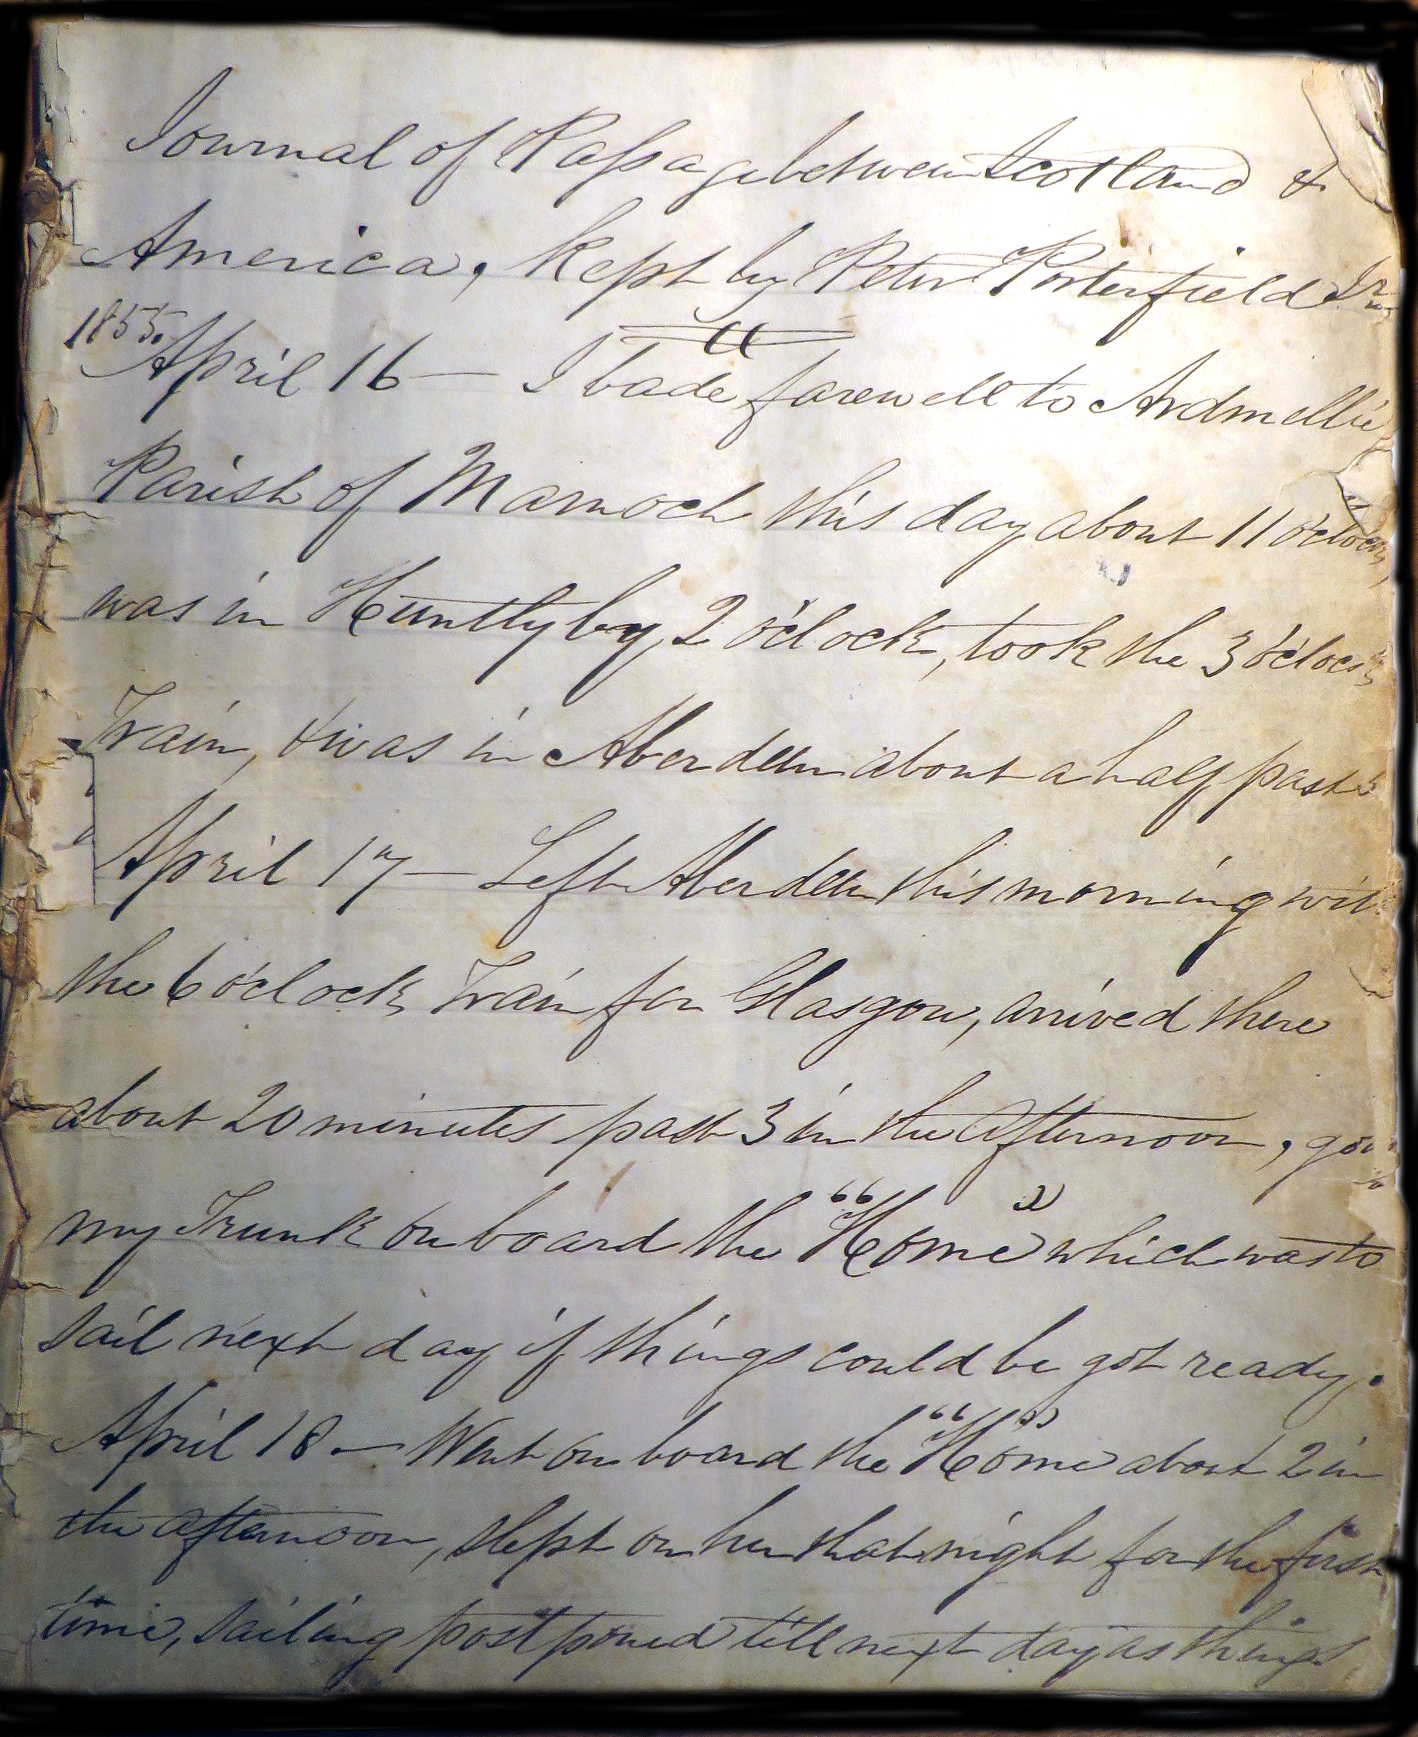 Journal of Passage between Scotland &
America, kept by Peter Porterfield Jr.
1855.
April 16 — I bade farewell to Ardmellie
Parish of Marnoch this day about 11 o'clock,
was in Huntly by 2 o'clock, took the 3 o'clock
Train, & was in Aberdeen about a half past 5
April 17 — Left Aberdeen this morning with
the 6 o'clock Train for Glasgow, arrived there
about 20 minutes past 3 in the afternoon, got
my Trunk on board the "Home" which was to
sail next day if things could be got ready.
April 18 — Went on board the "Home" about 2 in
the afternoon, slept on her that night for the first
time, sailing postponed till next day as things